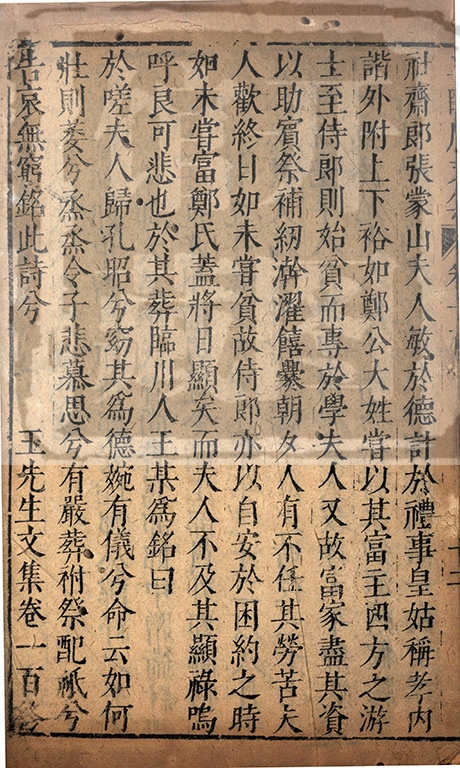 社齋郎張蒙山夫人敏於德計於禮事皇姑稱孝內
諧外附上下裕如鄭公大姓嘗以其富主四方之游
士至侍郎則始貧而專於學夫人又故富家盡其資
以助賓祭補紉澣濯饎爨朝夕人有不任其勞苦夫
人歡終日如未嘗貧故侍郎亦以自安於困約之時
如未嘗富鄭氏蓋將日顯矣而夫人不及其顯祿嗚
呼良可悲也於其葬臨川人王某為銘曰
於嗟夫人歸孔昭兮窈其為德婉有儀兮命云如何
壯則萎兮烝烝令子悲慕思兮有嚴葬祔祭配祇兮
告哀無窮銘此詩兮
王先生文集卷一百終